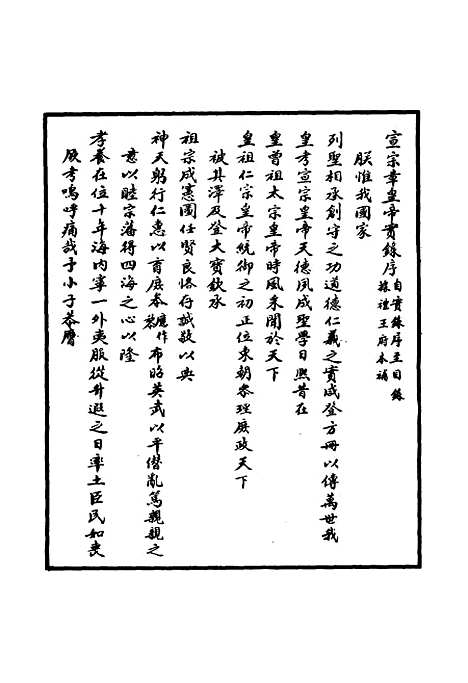 宣宗章皇帝實錄序 自實錄序至目錄 據禮王府本補
朕惟我國家
列聖相承創守之功道德仁義之實咸登方冊以傳萬世我
皇考宣宗皇帝天德夙成聖學日熙昔在
皇曾祖太宗皇帝時風采聞於天下
皇祖仁宗皇帝統御之初正位東朝參理庶政天下
被其澤及登大寶欽承
祖宗成憲圖任賢良恪存誠敬以典
神天躬行仁惠以育庶本 應作黎 布昭英武以平僭亂篤親親之
意以睦宗藩得四海之心以隆
孝養在位十年海內寧一外夷服從升遐之日率土臣民如喪
厥考嗚呼痛哉予小子恭膺